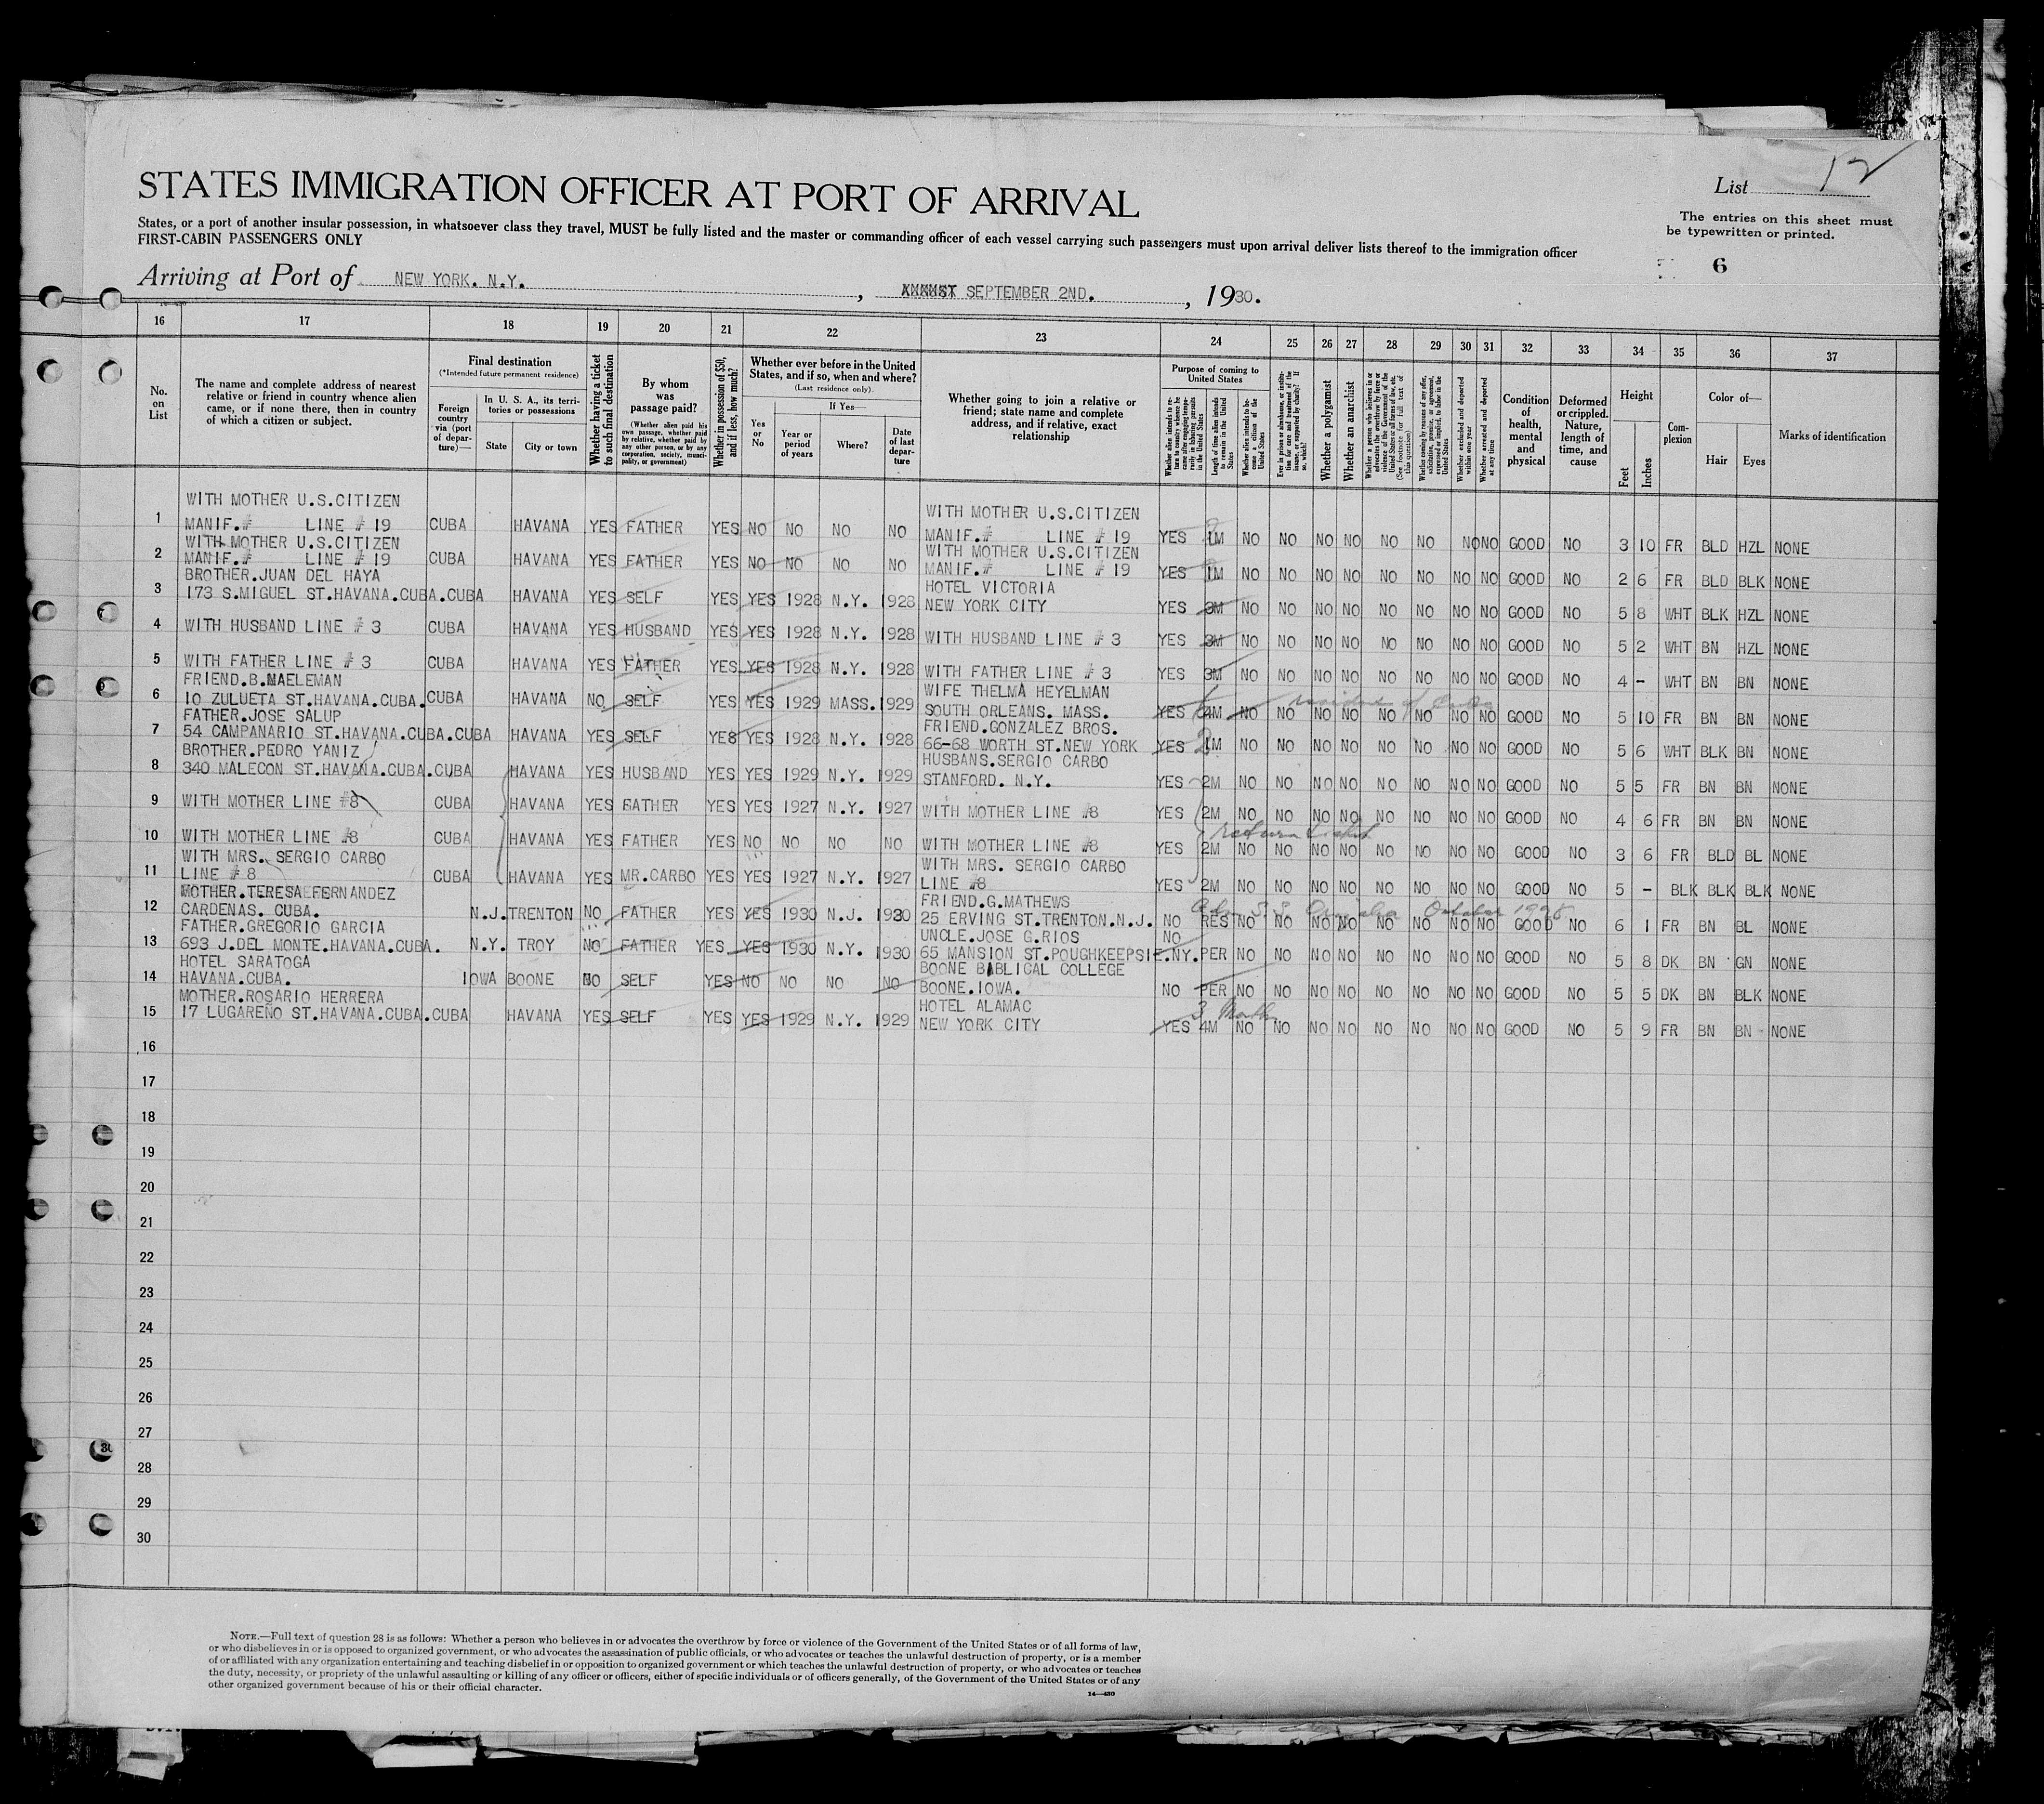 STATES IMMIGRATION OFFICER AT PORT OF ARRIVAL
List 12
States, or a port of another insular possession, in whatsoever class they travel, MUST be fully listed and the master or commanding officer of each vessel carrying such passengers must upon arrival deliver lists thereof to the immigration officer
FIRST-CABIN PASSENGERS ONLY
The entries on this sheet must
be typewritten or printed.
6
Arriving at Port of NEW YORK. N.Y. , SEPTEMBER 2ND. , 1930.
16 17 18 19 20 21 22 23 24 25 26 27 28 29 30 31 32 33 34 35 36 37
No. on List
The name and complete address of nearest relative or friend in country whence alien came, or if none there, then in country of which a citizen or subject.
Final destination
(*Intended future permanent residence)
Foreign country via (port of departure)—
In U. S. A., its territories or possessions
State
City or town
Whether having a ticket to such final destination
By whom was passage paid?
(Whether alien paid his own passage, whether paid by relative, whether paid by any other person, or by any corporation, society, municipality, or government)
Whether in possession of $50, and if less, how much?
Whether ever before in the United States, and if so, when and where?
(Last residence only).
Yes or No
If Yes—
Year or period of years
Where?
Date of last departure
Whether going to join a relative or friend; state name and complete address, and if relative, exact relationship
Purpose of coming to United States
Whether alien intends to return to country whence he came after engaging temporarily in laboring pursuits in the United States
Length of time alien intends to remain in the United States
Whether alien intends to become a citizen of the United States
Ever in prison or almshouse, or institution for care and treatment of the insane, or supported by charity? If so, which?
Whether a polygamist
Whether an anarchist
Whether a person who believes in or advocates the overthrow by force or violence of the Government of the United States or all forms of law, etc. (See footnote for full text of this question)
Whether coming by reasons of any offer, solicitation, promise, or agreement, expressed or implied, to labor in the United States
Whether excluded and deported within one year
Whether arrested and deported at any time
Condition of health, mental and physical
Deformed or crippled. Nature, length of time, and cause
Height
Feet
Inches
Complexion
Color of—
Hair
Eyes
Marks of identification
WITH MOTHER U.S.CITIZEN WITH MOTHER U.S.CITIZEN
1 MANIF.# LINE # 19 CUBA HAVANA YES FATHER YES NO NO NO NO MANIF.# LINE # 19 YES 1M NO NO NO NO NO NO NO NO GOOD NO 3 10 FR BLD HZL NONE
WITH MOTHER U.S.CITIZEN WITH MOTHER U.S.CITIZEN
2 MANIF.# LINE # 19 CUBA HAVANA YES FATHER YES NO NO NO NO MANIF.# LINE # 19 YES 1M NO NO NO NO NO NO NO NO GOOD NO 2 6 FR BLD BLK NONE
BROTHER.JUAN DEL HAYA HOTEL VICTORIA
3 173 S.MIGUEL ST.HAVANA.CUBA.CUBA HAVANA YES SELF YES YES 1928 N.Y. 1928 NEW YORK CITY YES 3M NO NO NO NO NO NO NO NO GOOD NO 5 8 WHT BLK HZL NONE
4 WITH HUSBAND LINE # 3 CUBA HAVANA YES HUSBAND YES YES 1928 N.Y. 1928 WITH HUSBAND LINE # 3 YES 3M NO NO NO NO NO NO NO NO GOOD NO 5 2 WHT BN HZL NONE
5 WITH FATHER LINE # 3 CUBA HAVANA YES FATHER YES YES 1928 N.Y. 1928 WITH FATHER LINE # 3 YES 3M NO NO NO NO NO NO NO NO GOOD NO 4 - WHT BN BN NONE
FRIEND.B.MAELEMAN WIFE THELMA HEYELMAN
resident of Cuba
6 10 ZULUETA ST.HAVANA.CUBA.CUBA HAVANA NO SELF YES YES 1929 MASS. 1929 SOUTH ORLEANS. MASS. YES 4M NO NO NO NO NO NO NO NO GOOD NO 5 10 FR BN BN NONE
FATHER.JOSE SALUP FRIEND.GONZALEZ BROS.
7 54 CAMPANARIO ST.HAVANA.CUBA.CUBA HAVANA YES SELF YES YES 1928 N.Y. 1928 66-68 WORTH ST.NEW YORK YES 2 1M NO NO NO NO NO NO NO NO GOOD NO 5 6 WHT BLK BN NONE
BROTHER.PEDRO YANIZ HUSBANS.SERGIO CARBO
8 340 MALECON ST.HAVANA.CUBA.CUBA HAVANA YES HUSBAND YES YES 1929 N.Y. 1929 STANFORD. N.Y. YES 2M NO NO NO NO NO NO NO NO GOOD NO 5 5 FR BN BN NONE
9 WITH MOTHER LINE #8 CUBA HAVANA YES GATHER YES YES 1927 N.Y. 1927 WITH MOTHER LINE #8 YES 2M NO NO NO NO NO NO NO NO GOOD NO 4 6 FR BN BN NONE
return ticket
10 WITH MOTHER LINE #8 CUBA HAVANA YES FATHER YES NO NO NO NO WITH MOTHER LINE #8 YES 2M NO NO NO NO NO NO NO NO GOOD NO 3 6 FR BLD BL NONE
WITH MRS. SERGIO CARBO WITH MRS. SERGIO CARBO
11 LINE # 8 CUBA HAVANA YES MR.CARBO YES YES 1927 N.Y. 1927 LINE #8 YES 2M NO NO NO NO NO NO NO NO GOOD NO 5 - BLK BLK BLK NONE
MOTHER.TERESA FERNANDEZ FRIEND.G.MATHEWS
S.S. October 1928
12 CARDENAS. CUBA. N.J. TRENTON NO FATHER YES YES 1930 N.J. 1930 25 ERVING ST.TRENTON.N.J. NO RES NO NO NO NO NO NO NO NO GOOD NO 6 1 FR BN BL NONE
FATHER.GREGORIO GARCIA UNCLE.JOSE G.RIOS NO
13 693 J.DEL MONTE.HAVANA.CUBA. N.Y. TROY NO FATHER YES YES 1930 N.Y. 1930 65 MANSION ST.POUGHKEEPSIE.NY. PER NO NO NO NO NO NO NO NO GOOD NO 5 8 DK BN GN NONE
HOTEL SARATOGA BOONE BABLICAL COLLEGE
14 HAVANA.CUBA. IOWA BOONE NO SELF YES NO NO NO NO BOONE.IOWA. NO PER NO NO NO NO NO NO NO NO GOOD NO 5 5 DK BN BLK NONE
MOTHER.ROSARIO HERRERA HOTEL ALAMAC 3 Months
15 17 LUGAREÑO ST.HAVANA.CUBA.CUBA HAVANA YES SELF YES YES 1929 N.Y. 1929 NEW YORK CITY YES 4M NO NO NO NO NO NO NO NO GOOD NO 5 9 FR BN BN NONE
16
17
18
19
20
21
22
23
24
25
26
27
28
29
30
NOTE.—Full text of question 28 is as follows: Whether a person who believes in or advocates the overthrow by force or violence of the Government of the United States or of all forms of law,
or who disbelieves in or is opposed to organized government, or who advocates the assassination of public officials, or who advocates or teaches the unlawful destruction of property, or is a member
of or affiliated with any organization entertaining and teaching disbelief in or opposition to organized government or which teaches the unlawful destruction of property, or who advocates or teaches
the duty, necessity, or propriety of the unlawful assaulting or killing of any officer or officers, either of specific individuals or of officers generally, of the Government of the United States or of any
other organized government because of his or their official character.
14—430